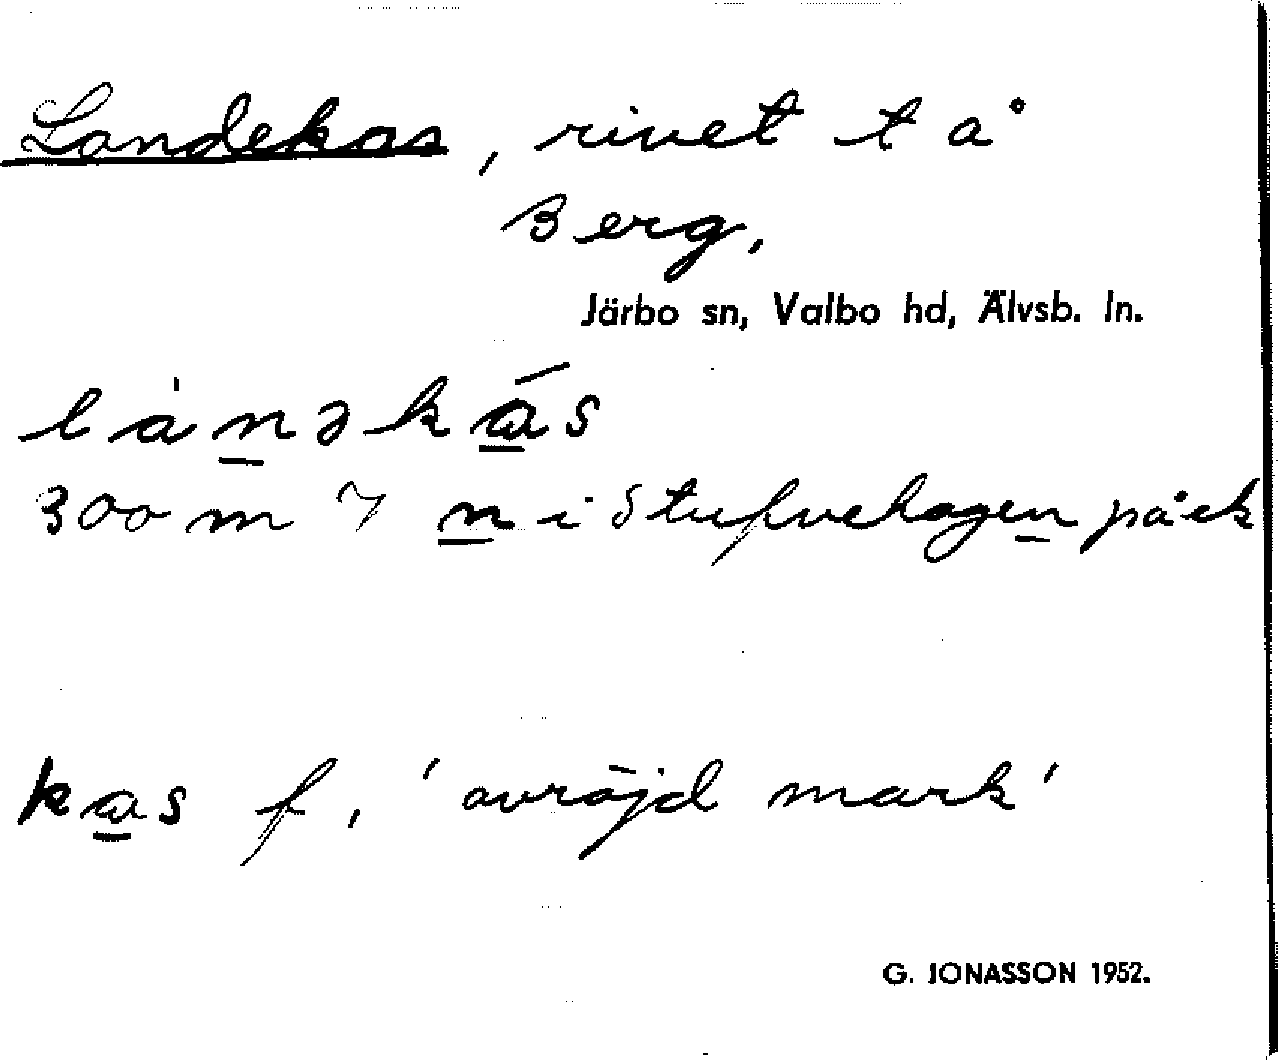 Landekas, rivet t å
Berg,
Järbo sn, Valbo hd, Älvsb. ln.
lànəkás
300 m n i Stufvehagen på ek
kas f, 'avröjd mark'
G. JONASSON 1952.